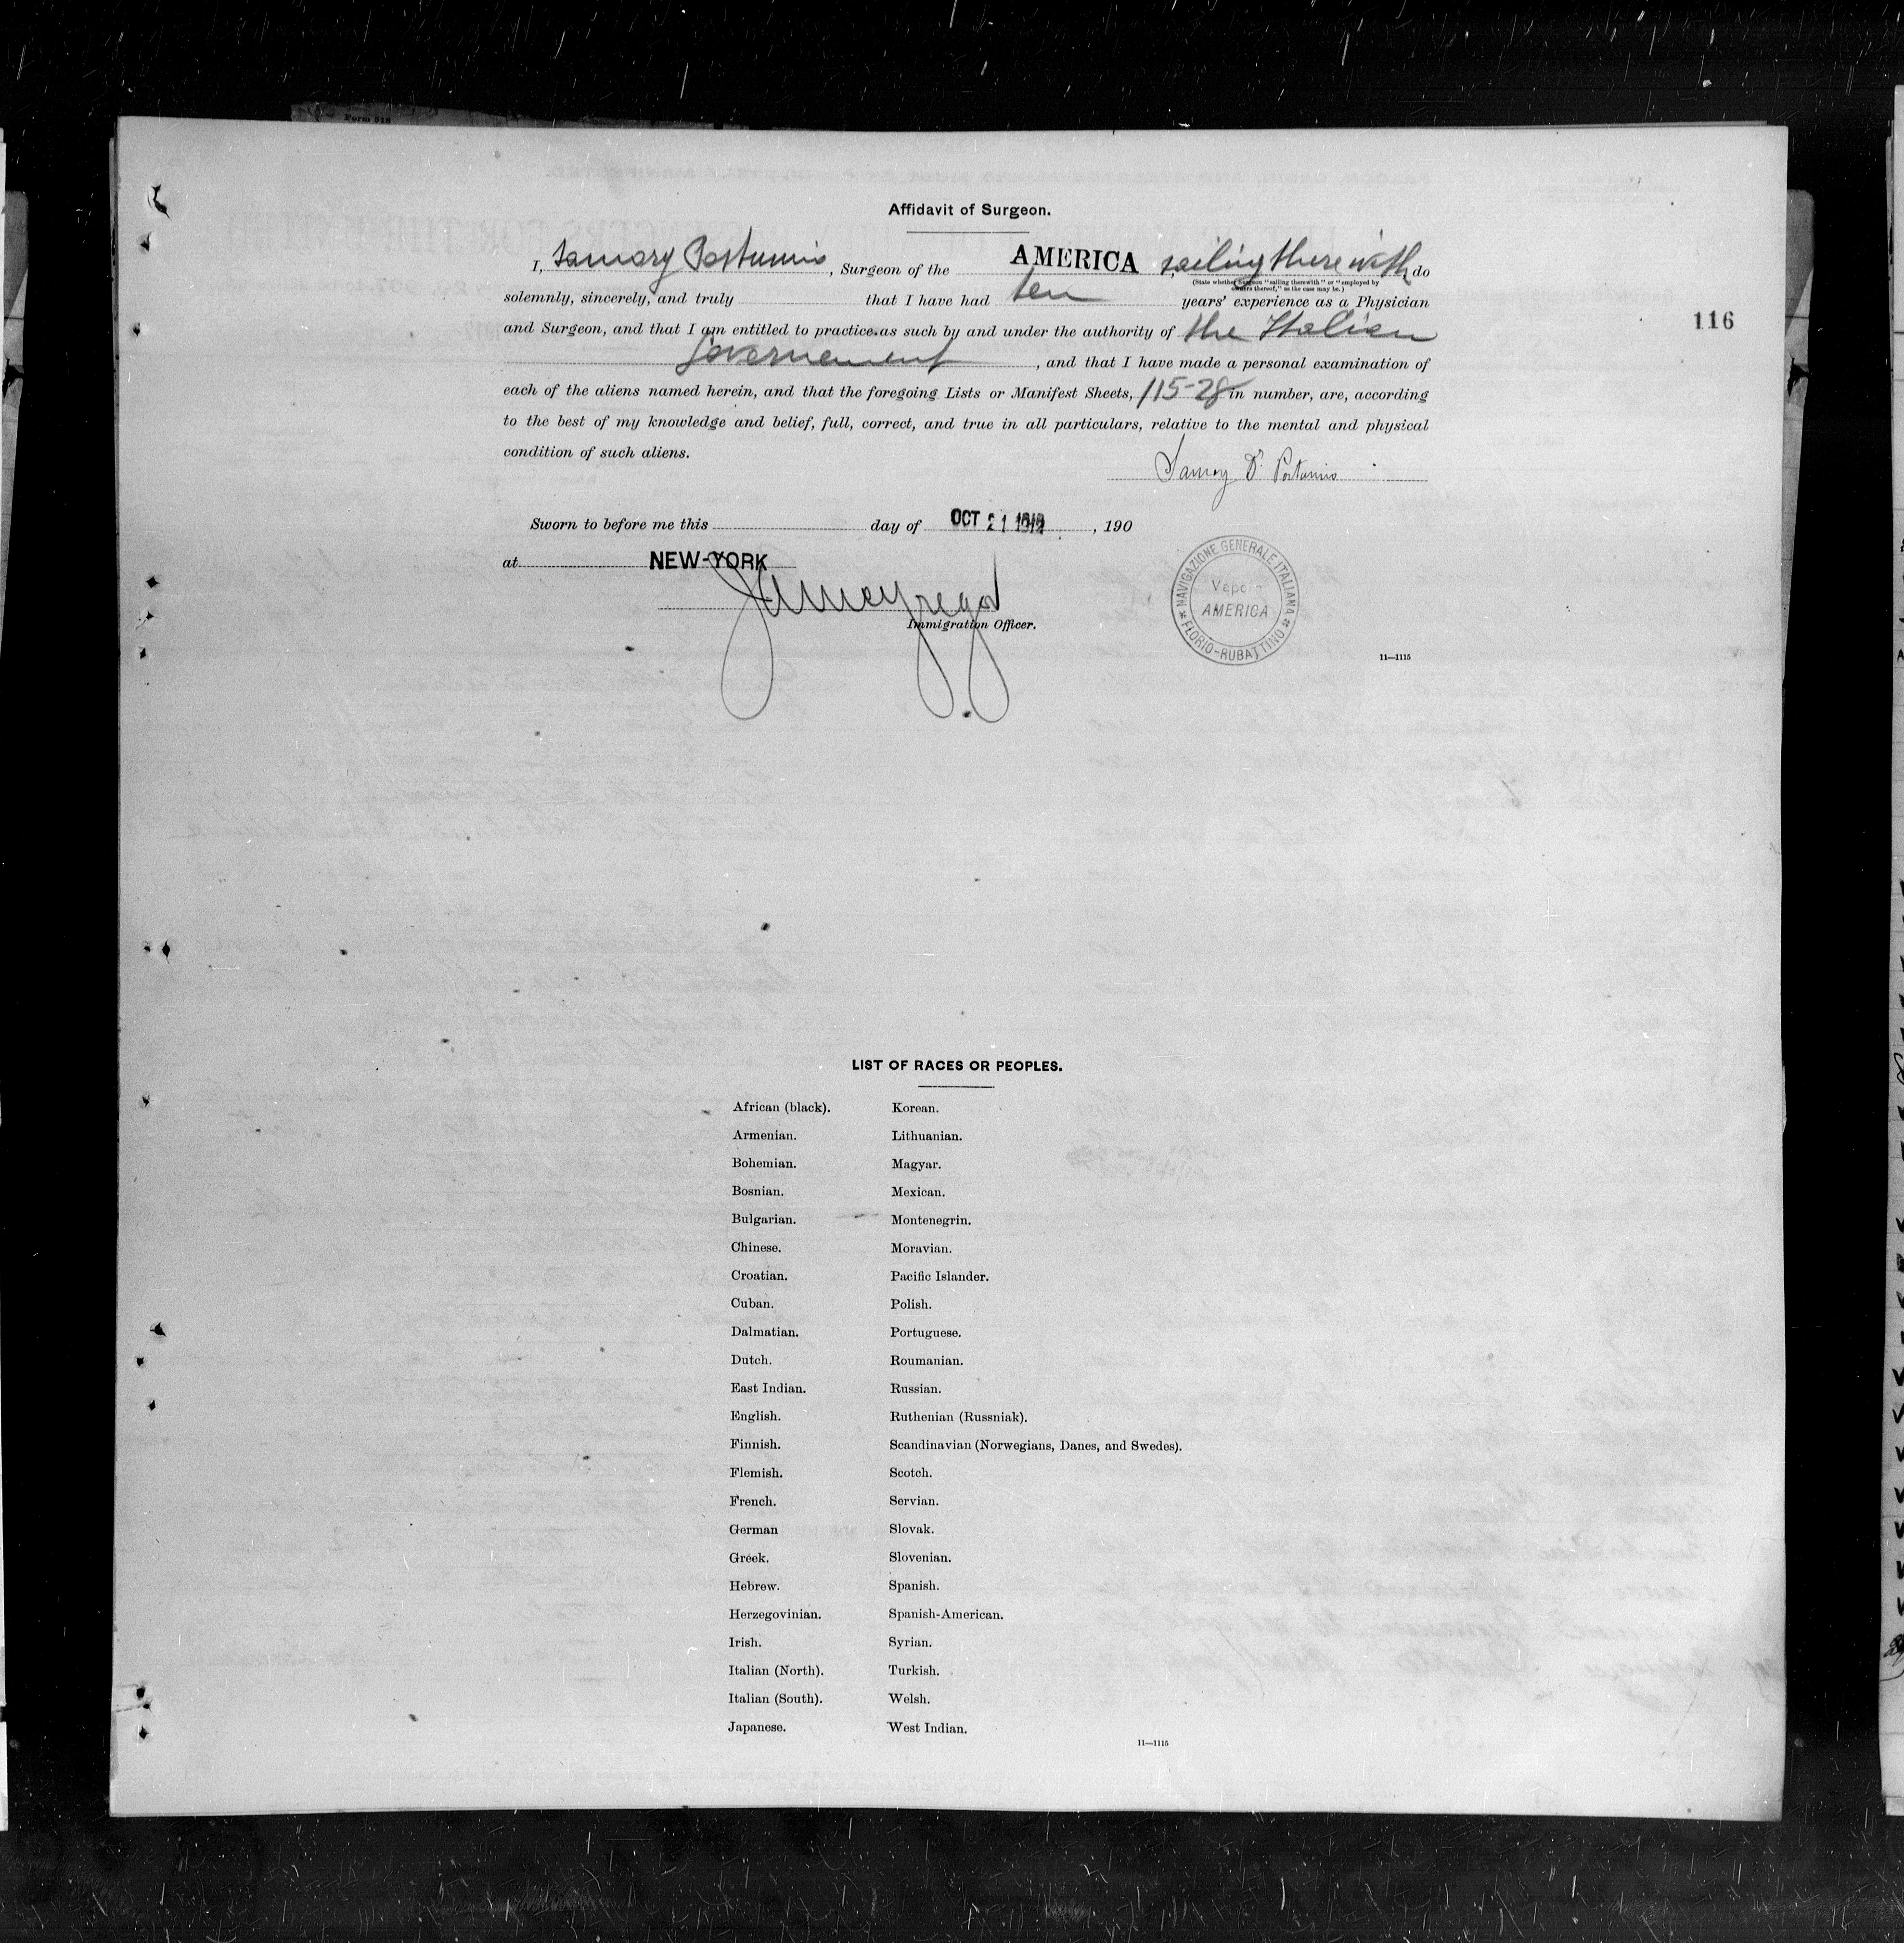 Form 518
Affidavit of Surgeon.
I, , Surgeon of the AMERICA sailing therewith do
(State whether Surgeon "sailing therewith" or "employed by
owners thereof," as the case may be.)
solemnly, sincerely, and truly that I have had ten years' experience as a Physician
and Surgeon, and that I am entitled to practice as such by and under the authority of the Italian
Governement, and that I have made a personal examination of
116
each of the aliens named herein, and that the foregoing Lists or Manifest Sheets, 115-28 in number, are, according
to the best of my knowledge and belief, full, correct, and true in all particulars, relative to the mental and physical
condition of such aliens.
Sworn to before me this day of OCT 21, 190
at NEW-YORK
Immigration Officer.
NAVIGAZIONE GENERALE ITALIANA
Vapore
AMERICA
FLORIO-RUBATTINO
11—1115
LIST OF RACES OR PEOPLES.
African (black). Korean.
Armenian. Lithuanian.
Bohemian. Magyar.
Bosnian. Mexican.
Bulgarian. Montenegrin.
Chinese. Moravian.
Croatian. Pacific Islander.
Cuban. Polish.
Dalmatian. Portuguese.
Dutch. Roumanian.
East Indian. Russian.
English. Ruthenian (Russniak).
Finnish. Scandinavian (Norwegians, Danes, and Swedes).
Flemish. Scotch.
French. Servian.
German Slovak.
Greek. Slovenian.
Hebrew. Spanish.
Herzegovinian. Spanish-American.
Irish. Syrian.
Italian (North). Turkish.
Italian (South). Welsh.
Japanese. West Indian.
11—1115